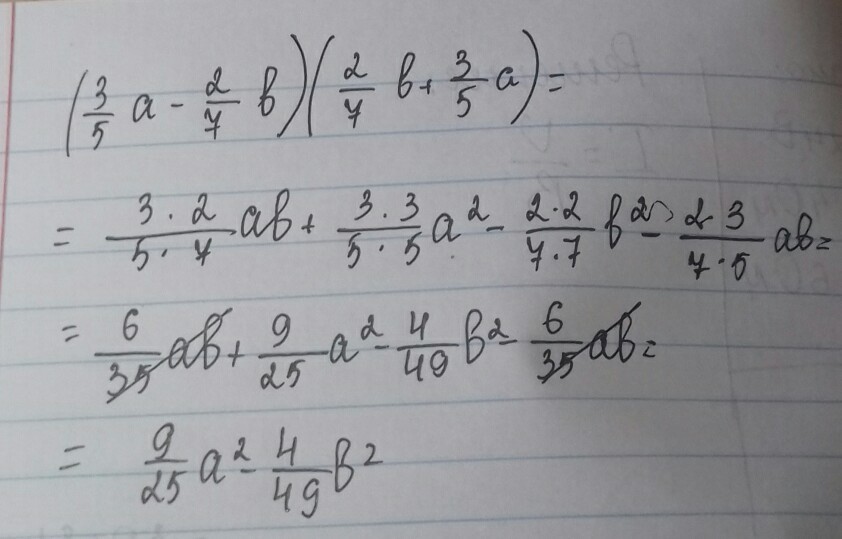 (3/5 a - 2/7 b)(2/7 b + 3/5 a) =
= 3·2/5·7 ab + 3·3/5·5 a² - 2·2/7·7 b² - 2·3/7·5 ab =
= 6/35 ab + 9/25 a² - 4/49 b² - 6/35 ab =
= 9/25 a² - 4/49 b²